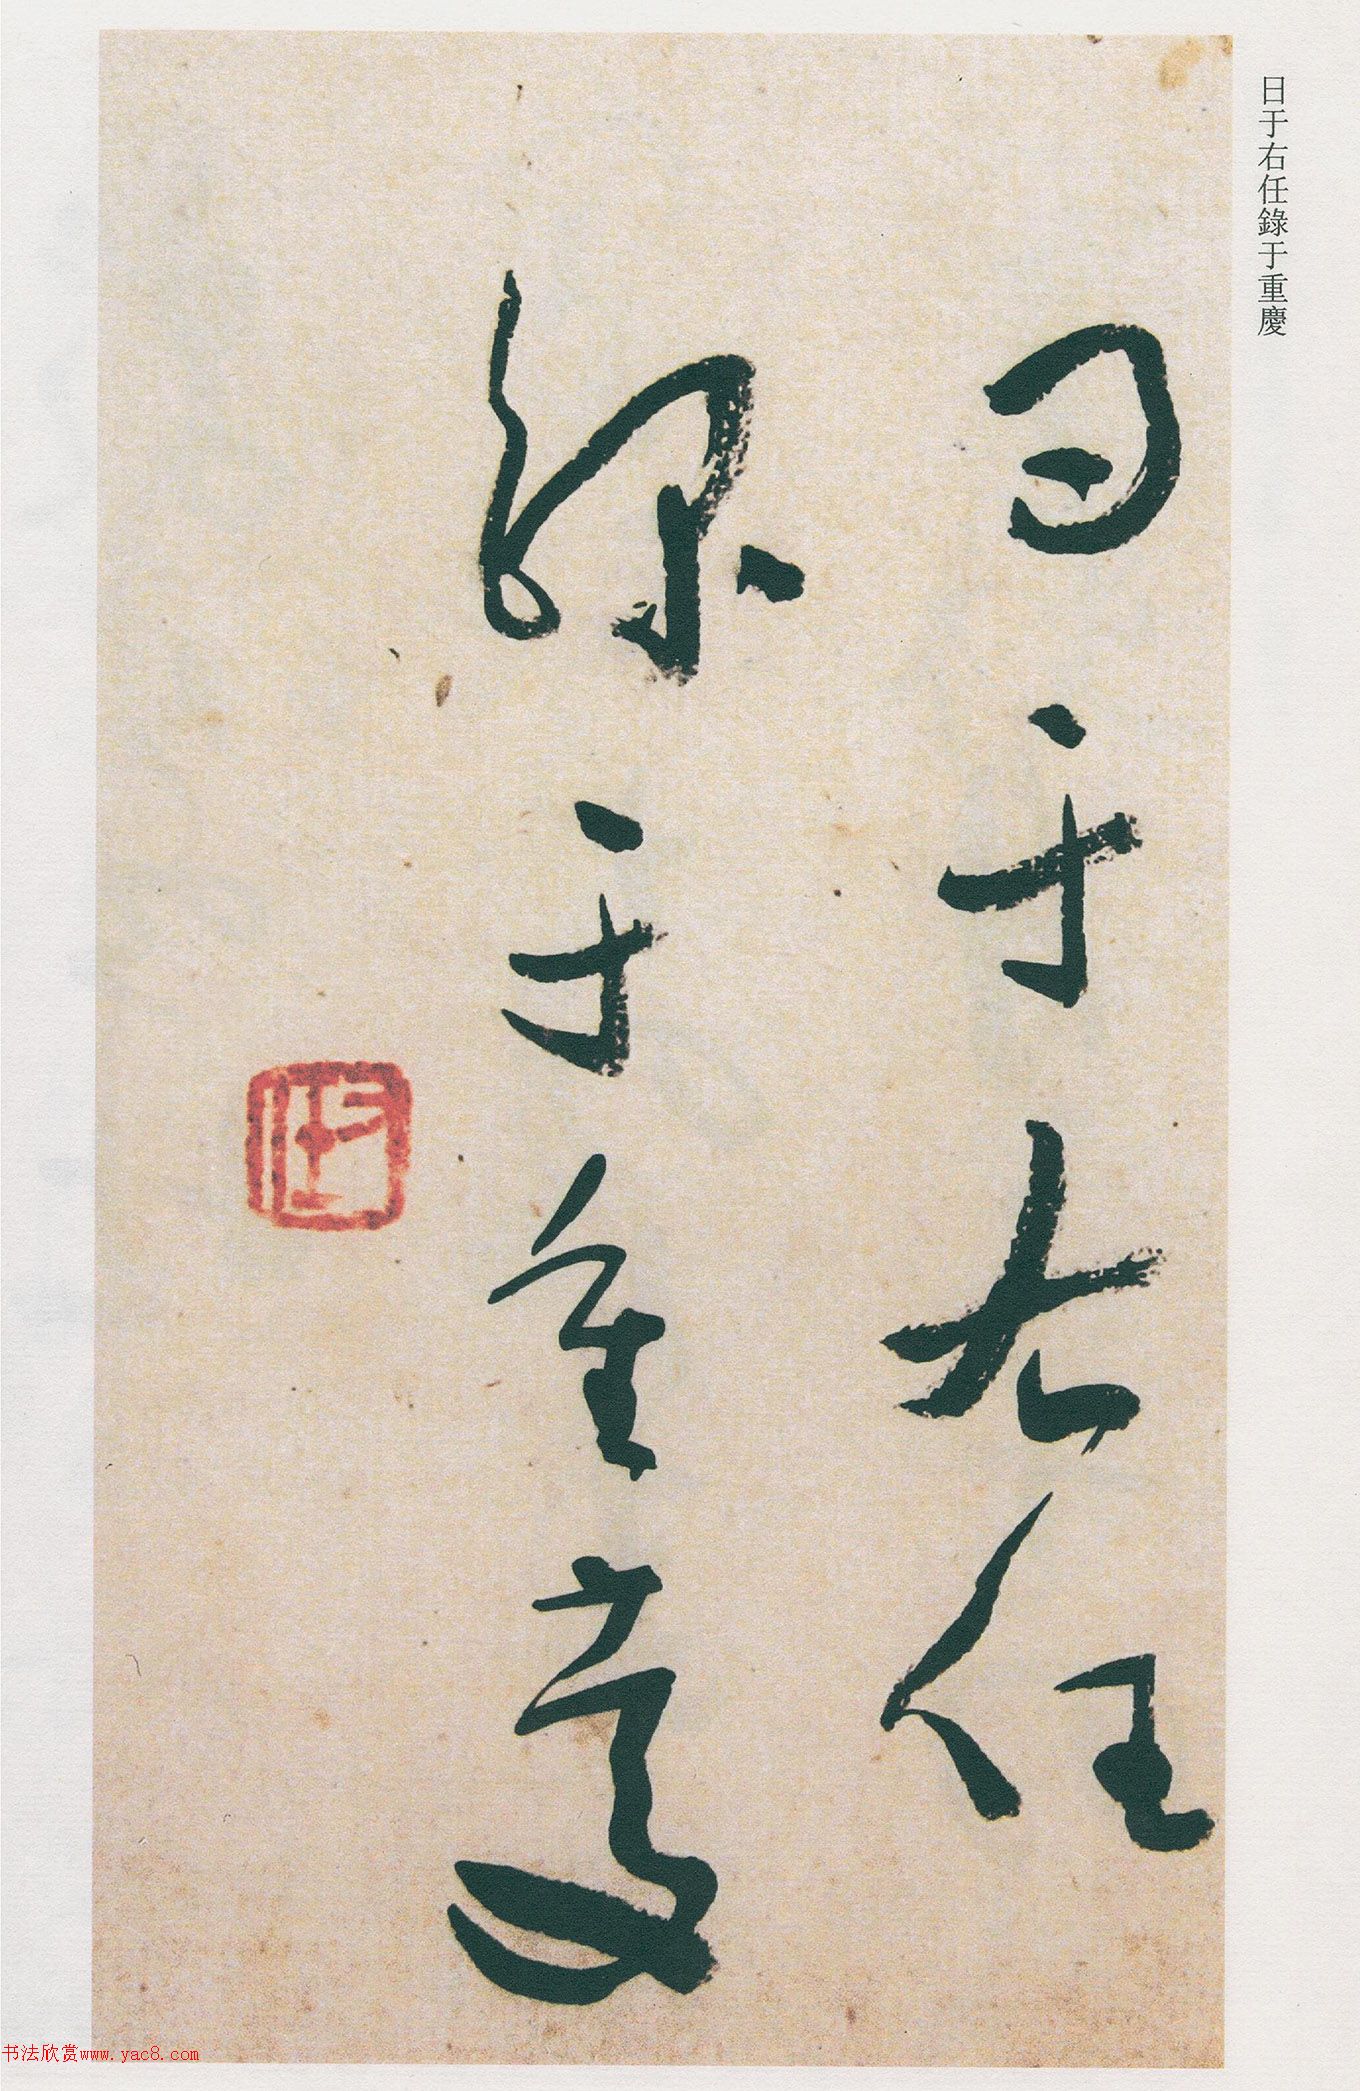 日于右任錄于重慶
日于右任
錄于重慶
书法欣赏www.yac8.com